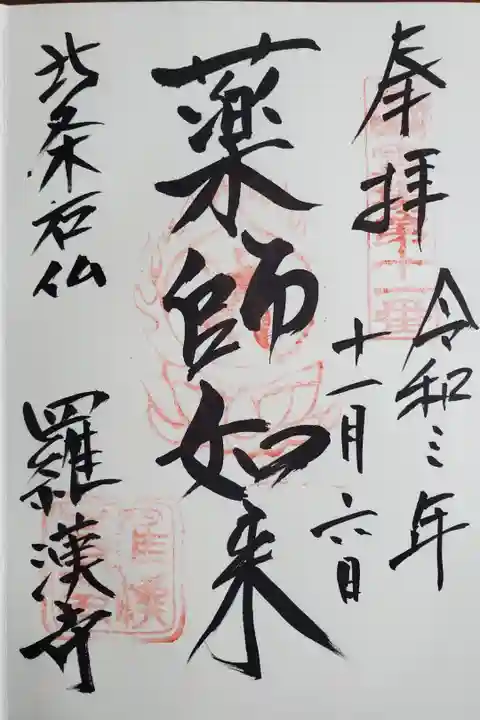 奉拝
令和三年
十一月六日
薬師如来
北条石仏
羅漢寺